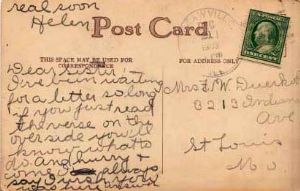 real soon
Helen
Post Card
THIS SPACE MAY BE USED FOR
CORRESPONDENCE
FOR ADDRESS ONLY
Dear Sister:
I've been waiting
for a letter so long
if you just read
the verse on the
over side you'll
know what to
do and hurry &
come I always
say I wish you
Mrs J. W.
3213 Indiana
Ave
St Louis
Mo.